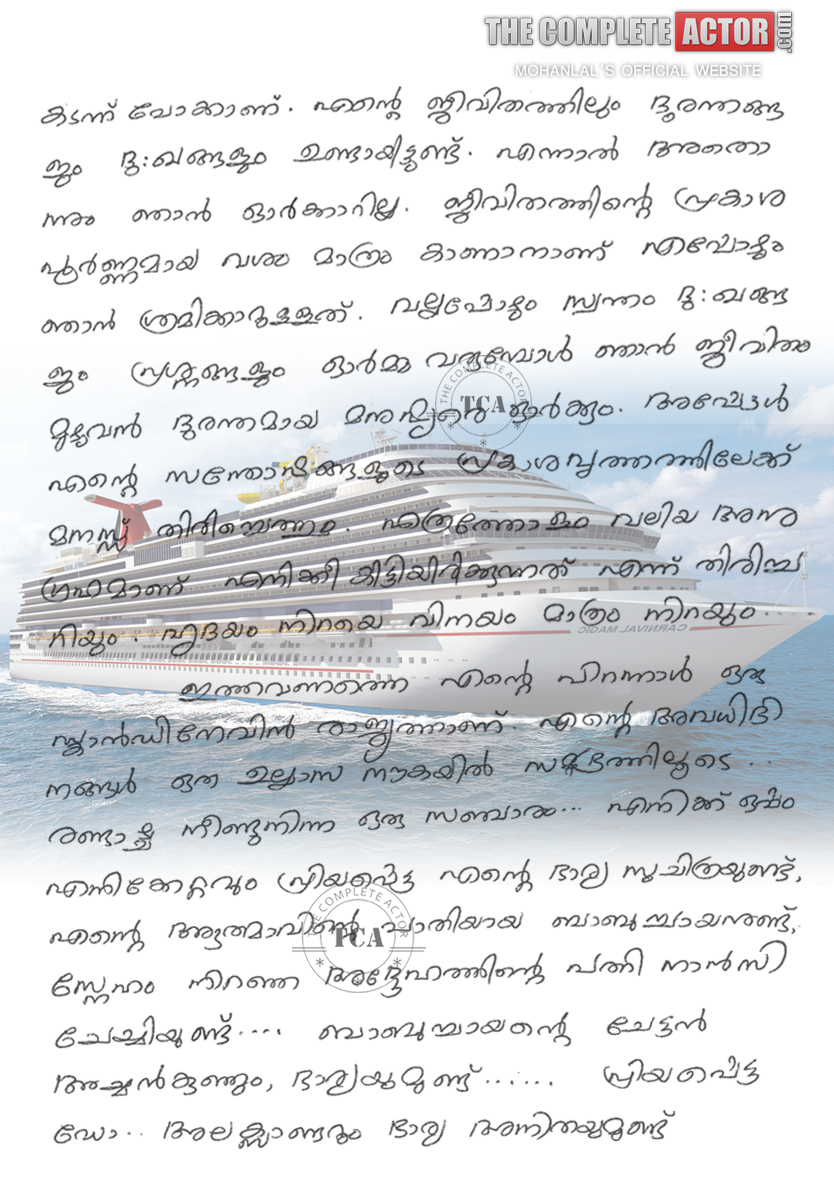 THE COMPLETE ACTOR.com
MOHANLAL'S OFFICIAL WEBSITE
കടന്ന് പോക്കാണ്. എന്റെ ജീവിതത്തിലും ദുരന്തങ്ങ
ളും ദു:ഖങ്ങളും ഉണ്ടായിട്ടുണ്ട്. എന്നാൽ അതൊ
ന്നും ഞാൻ ഓർക്കാറില്ല. ജീവിതത്തിന്റെ പ്രകാശ
പൂർണ്ണമായ വശം മാത്രം കാണാനാണ് എപ്പോഴും
ഞാൻ ശ്രമിക്കാറുള്ളത്. വല്ലപ്പോഴും സ്വന്തം ദു:ഖങ്ങ
ളും പ്രശ്നങ്ങളും ഓർമ്മ വരുമ്പോൾ ഞാൻ ജീവിതം
മുഴുവൻ ദുരന്തമായ മനുഷ്യരെ ഓർക്കും. അപ്പോൾ
എന്റെ സന്തോഷങ്ങളുടെ പ്രകാശവൃത്തത്തിലേക്ക്
മനസ്സ് തിരിച്ചെത്തും. എത്രത്തോളം വലിയ അനു
ഗ്രഹമാണ് എനിക്ക് കിട്ടിയിരിക്കുന്നത് എന്ന് തിരിച്ച
റിയും. ഹൃദയം നിറയെ വിനയം മാത്രം നിറയും.
ഇത്തവണത്തെ എന്റെ പിറന്നാൾ ഒരു
സ്കാൻഡിനേവിൻ രാജ്യത്താണ്. എന്റെ അവധിദി
നങ്ങൾ ഒരു ഉല്ലാസ നൗകയിൽ സമുദ്രത്തിലൂടെ ..
രണ്ടാഴ്ച നീണ്ടുനിന്ന ഒരു സഞ്ചാരം... എനിക്ക് ഒപ്പം
എനിക്കേറ്റവും പ്രിയപ്പെട്ട എന്റെ ഭാര്യ സുചിത്രയുണ്ട്,
എന്റെ ആത്മാവിന്റെ പാതിയായ ബാബുച്ചായനുണ്ട്,
സ്നേഹം നിറഞ്ഞ അദ്ദേഹത്തിന്റെ പത്നി നാൻസി
ചേച്ചിയുണ്ട്.... ബാബുച്ചായന്റെ ചേട്ടൻ
അച്ചൻകുഞ്ഞും, ഭാര്യയുമുണ്ട്...... പ്രിയപ്പെട്ട
ഡോ.. അലക്സാണ്ടറും ഭാര്യ അനിതയുമുണ്ട്
THE COMPLETE ACTOR
TCA
CARNIVAL MAGIC
THE COMPLETE ACTOR
TCA